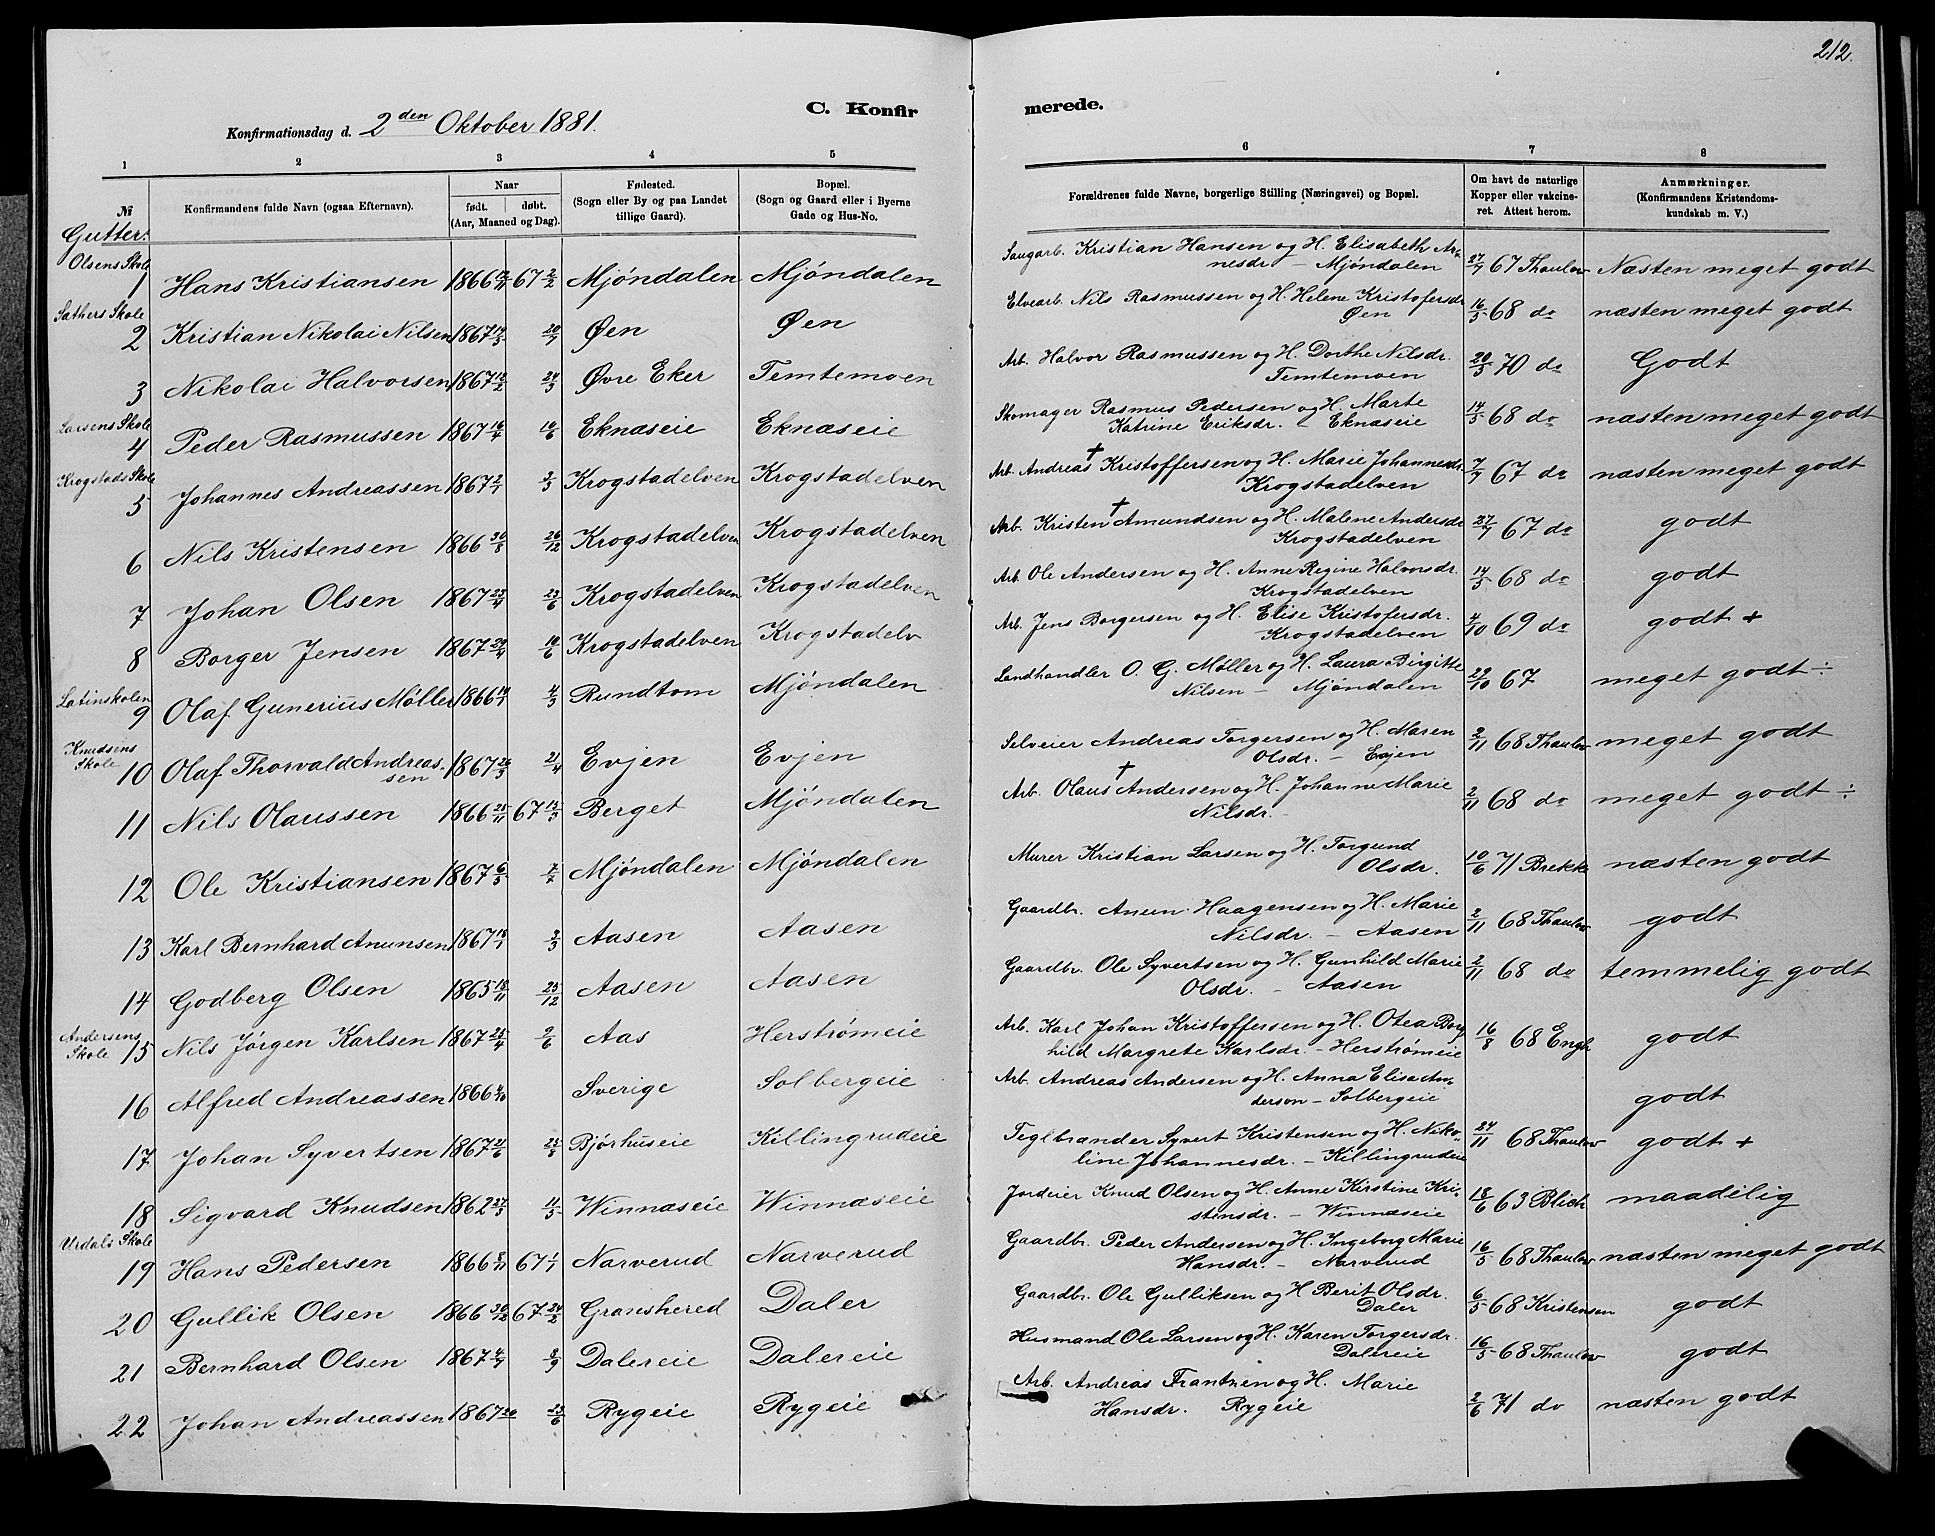 212.
C. Konfirmerede.
Konfirmationsdag d. 2den Oktober 1881.
1 2 3 4 5 6 7 8
№ Konfirmandens fulde Navn (ogsaa Efternavn). Naar født. døbt. (Aar, Maaned og Dag). Fødested. (Sogn eller By og paa Landet tillige Gaard). Bopæl. (Sogn og Gaard eller i Byerne Gade og Hus-No. Forældrenes fulde Navne, borgerlige Stilling (Næringsvei) og Bopæl. Om havt de naturlige Kopper eller vakcineret. Attest herom. Anmærkninger. (Konfirmandens Kristendomskundskab m. V.)
Gutter:
Olsens Skole
1 Hans Kristiansen 1866 67 2/2 Mjöndalen Mjöndalen Saugarb. Kristian Hansen og H. Elisabeth Arnesdr. – Mjöndalen 27/7 67 Thaulow Næsten meget godt
Sathers Skole
2 Kristian Nikolai Nilsen 1867 20/7 Øen Øen Elvearb. Nils Rasmussen og H. Helene Kristofersdr Øen 16/5 68 do næsten meget godt
3 Nikolai Halvorsen 1867 24/3 Øvre Eker Temtemoen Arb. Halvor Rasmussen og H. Dorthe Nilsdr. Temtemoen 20/5 70 do Godt
Larsens Skole
4 Peder Rasmussen 1867 16/4 10/6 Eknæseie Eknæseie Skomager Rasmus Pedersen og H. Marte Katrine Eriksdr. – Eknæseie 14/5 68 do næsten meget godt
Krogstads Skole
5 Johannes Andreassen 1867 2/1 3/3 Krogstadelven Krogstadelven Arb. Andreas † Kristoffersen og H. Marie Johannesdr. Krogstadelven 7/7 67 do næsten meget godt
6 Nils Kristensen 1866 30/8 26/12 Krogstadelven Krogstadelven Arb. Kristen † Amundsen og H. Malene Andersdr Krogstadelven 27/7 67 do godt
7 Johan Olsen 1867 23/4 23/6 Krogstadelven Krogstadelven Arb. Ole Andersen og H. Anne Regine Halvorsdr. Krogstadelven 14/5 68 do godt
8 Borger Jensen 1867 29/4 10/6 Krogstadelven Krogstadelv Arb. Jens Borgersen og H. Elise Kristofersdr. Krogstadelven 4/10 69 do godt +
Latinskolen
9 Olaf Gunerius Møller 1866 4/3 Rundtom Mjöndalen Landhandler O. G. Møller og H. Laura Birgitte Nilsen – Mjöndalen 22/10 67 meget godt ÷
Knudsens Skole
10 Olaf Thorvald Andreassen 1867 21/4 Evjen Evjen Selveier Andreas Torgersen og H. Maren Olsdr. – Evjen 2/11 68 Thaulow meget godt
11 Nils Olaussen 1866 25/11 67 Berget Mjöndalen Arb. Olaus † Andersen og H. Johanne Marie Nilsdr. – 2/11 68 do meget godt ÷
12 Ole Kristiansen 1867 6/5 7/7 Mjöndalen Mjöndalen Murer Kristian Larsen og H. Torgund Olsdr. 10/6 71 Brekke næsten godt
13 Karl Bernhard Anunsen 1867 18/1 3/3 Aasen Aasen Gaardbr. Anun Haagensen og H. Marie Nilsdr. – Aasen 2/11 68 Thaulow godt
14 Godberg Olsen 1865 18/11 25/12 Aasen Aasen Gaardbr. Ole Syvertsen og H. Gunhild Marie Olsdr. – Aasen 2/11 68 do temmelig godt
Andersens Skole
15 Nils Jørgen Karlsen 1867 25/4 9/6 Aas Herstrømeie Arb. Karl Johan Kristoffersen og H. Otea Borghild Margrete Karlsdr. – Herstrømeie 16/8 68 Engh godt
16 Alfred Andreassen 1866 4/10 Sverige Solbergeie Arb. Andreas Andersen og H. Anna Elisa Anderson – Solbergeie godt
17 Johan Syvertsen 1867 Bjørhuseie Killingrudeie Teglbrænder Syvert Kristensen og H. Nikoline Johannesdr. – Killingrudeie 24/11 68 Thaulow godt +
18 Sigvard Knudsen 1862 27/3 11/5 Winnæseie Winnæseie Jordeier Knud Olsen og H. Anne Kirstine Kristensdr. – Winnæseie 18/6 63 Blich maadelig
Urdals Skole
19 Hans Pedersen 1866 8/11 67 1/1 Narverud Narverud Gaardbr. Peder Andersen og H. Ingeborg Marie Hansdr. – Narverud 16/5 68 Thaulow næsten meget godt
20 Gullik Olsen 1866 30/12 67 24/2 Gransherred Daler Gaardbr. Ole Gulliksen og H Berit Olsdr. Daler 6/5 68 Kristensen godt
21 Bernhard Olsen 1867 4/7 8/9 Dalereie Dalereie Husmand Ole Larsen og H. Karen Torgersdr. Dalereie 16/5 68 Thaulow godt
22 Johan Andreassen 1867 23/6 Rygeie Rygeie Arb. Andreas Frantzen og H. Marie Hansdr. Rygeie 2/6 71 do næsten godt